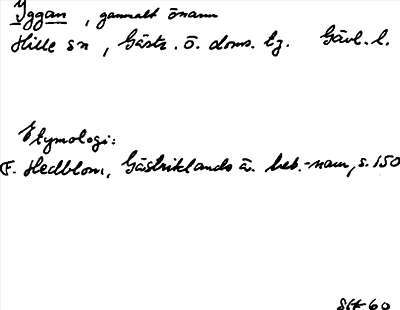 Yggan, gammalt önamn
Hille sn, Gästr. ö. doms. tg. Gävl. l.
Etymologi:
F. Hedblom, Gästriklands ä. beb.-namn, s. 150